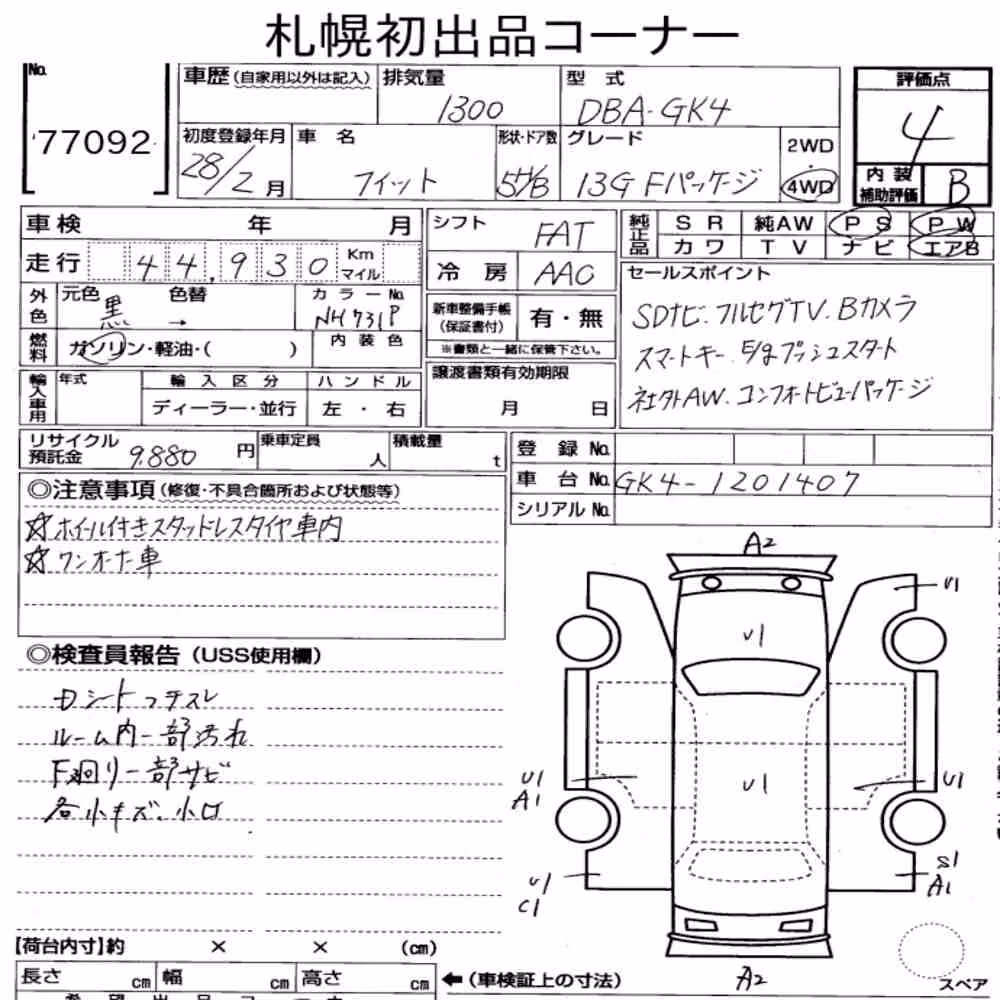 札幌初出品コーナー
No.
77092
車歴 (自家用以外は記入)
排気量
1300
型 式
DBA-GK4
評価点
4
初度登録年月
28/2 月
車 名
フィット
形状・ドア数
5H/B
グレード
13G Fパッケージ
2WD
4WD
内装補助評価
B
車検 年 月
シフト
FAT
純正品
SR 純AW PS PW
カワ TV ナビ エアB
走行 44,930 Km マイル
冷房
AAC
セールスポイント
SDナビ.フルセグTV.Bカメラ
スマートキー.E/gプッシュスタート
社外AW.コンフォートビューパッケージ
外色
元色 黒 色替 →
カラーNo.
NH731P
新車整備手帳
(保証書付)
有・無
※書類と一緒に保管下さい。
燃料
ガソリン・軽油・( )
内装色
輸入車用
年式
輸入区分
ハンドル
ディーラー・並行
左・右
譲渡書類有効期限
月 日
リサイクル預託金
9.880 円
乗車定員 人
積載量 t
登録No.
車台No. GK4-1201407
シリアルNo.
◎注意事項 (修復・不具合箇所および状態等)
☆ホイール付きスタッドレスタイヤ車内
☆ワンオーナー車
◎検査員報告 (USS使用欄)
Dシートコゲスレ
ルーム内一部汚れ
下廻り一部サビ
各小キズ、小凹
A2
U1
U1
U1
U1
A1
U1
U1
C1
S1
A1
A2
スペア
【荷台内寸】約 × × (cm)
長さ cm 幅 cm 高さ cm
←(車検証上の寸法)